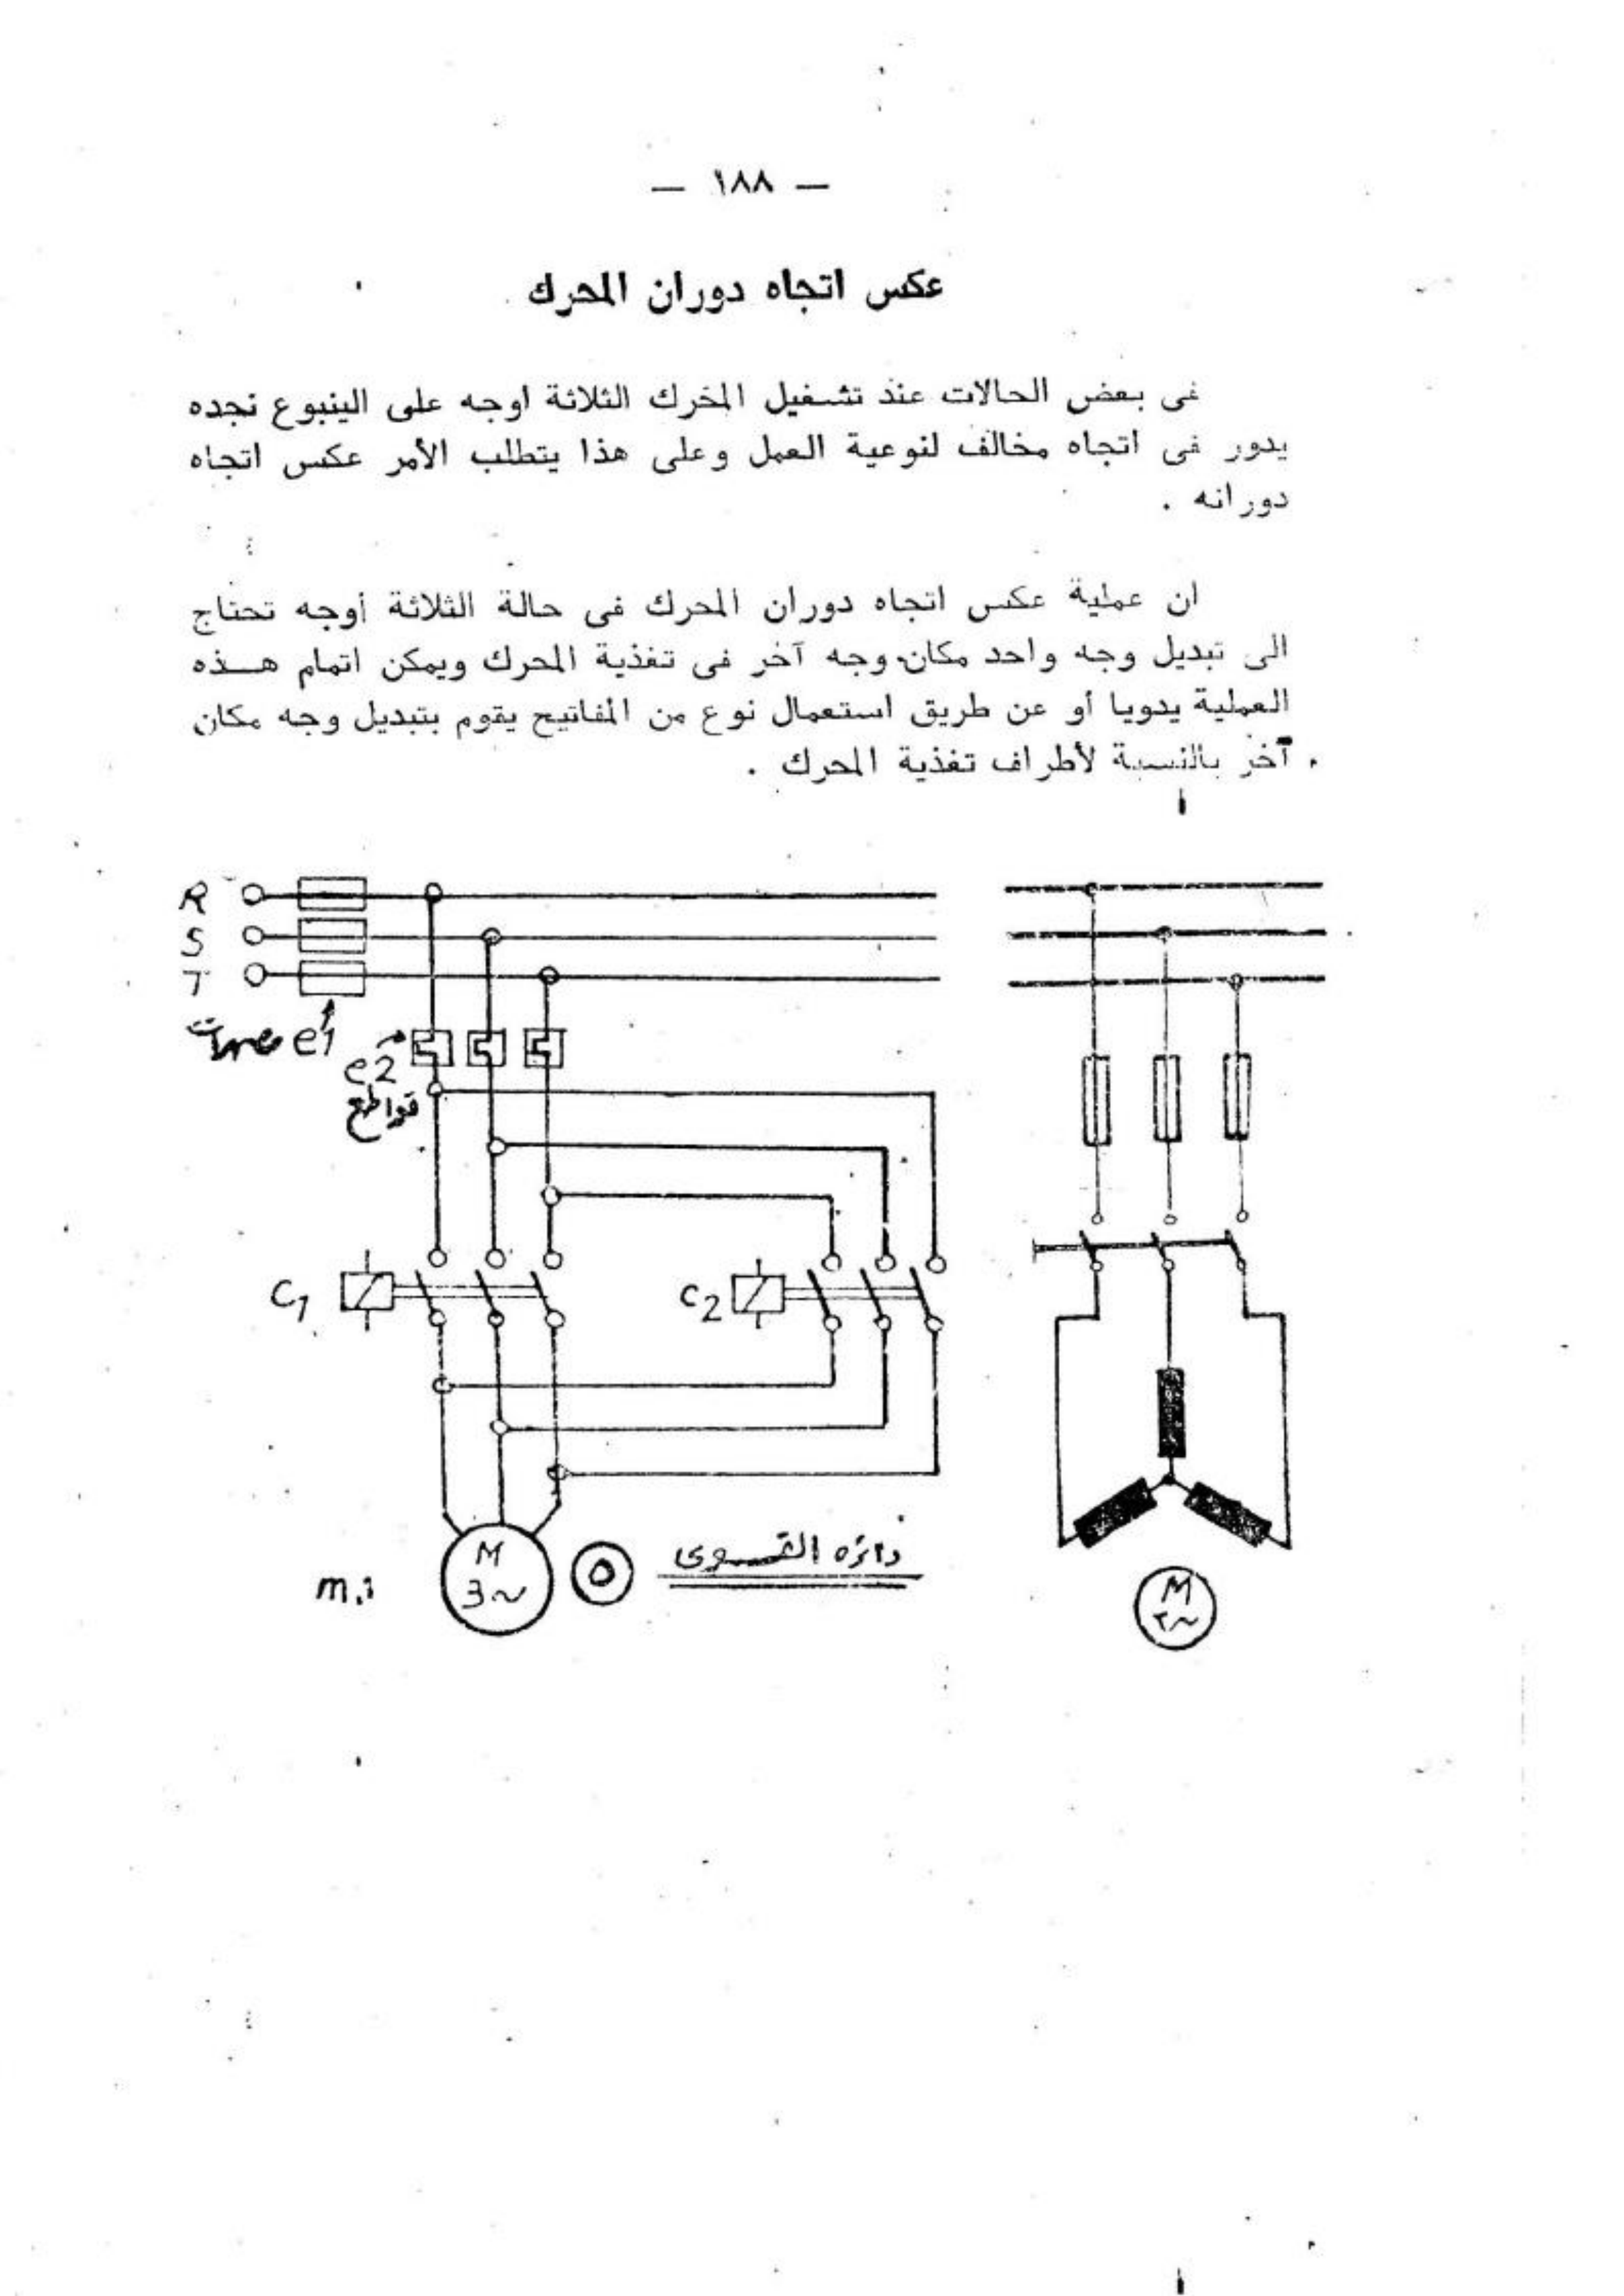 — ١٨٨ —
عكس اتجاه دوران المحرك
فى بعض الحالات عند تشغيل المحرك الثلاثة اوجه على الينبوع نجده
يدور فى اتجاه مخالف لنوعية العمل وعلى هذا يتطلب الأمر عكس اتجاه
دورانه .
ان عملية عكس اتجاه دوران المحرك فى حالة الثلاثة أوجه تحتاج
الى تبديل وجه واحد مكان وجه آخر فى تغذية المحرك ويمكن اتمام هـــذه
العملية يدويا أو عن طريق استعمال نوع من المفاتيح يقوم بتبديل وجه مكان
آخر بالنسبة لأطراف تغذية المحرك .
R
S
T
e1
e2
قواطع
C1
C2
M
3~
m.1
٥
دائره القــوى
M
٣~